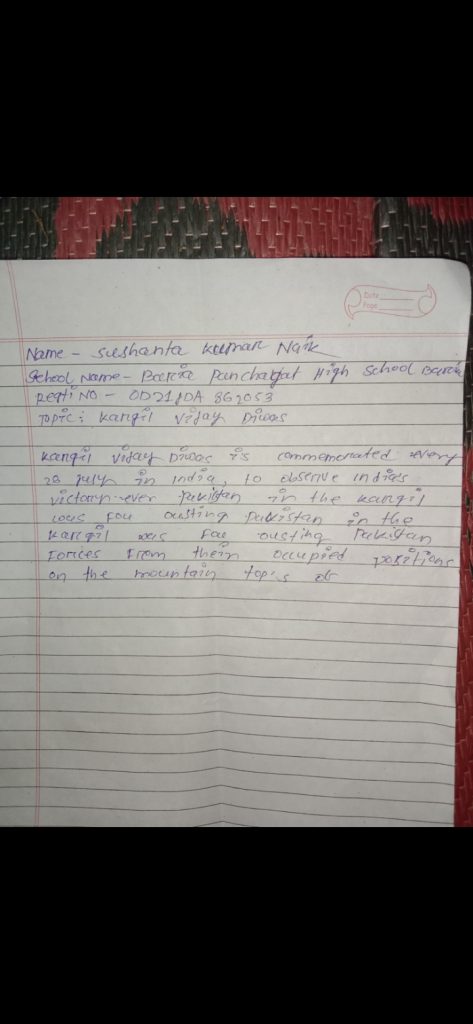 Date
Page
Name - Sushanta Kumar Naik
School Name - Baria Panchayat High School Baria
Regti NO - OD21JDA 862053
Topic: Kargil Vijay Diwas
Kargil Vijay Diwas is commemorated every
26 July in India, to observe indias
victory over Pakistan in the Kargil
was Fou ousting Pakistan in the
Kargil was Fou ousting Pakistan
Forces From their occupied positions
on the mountain top's of